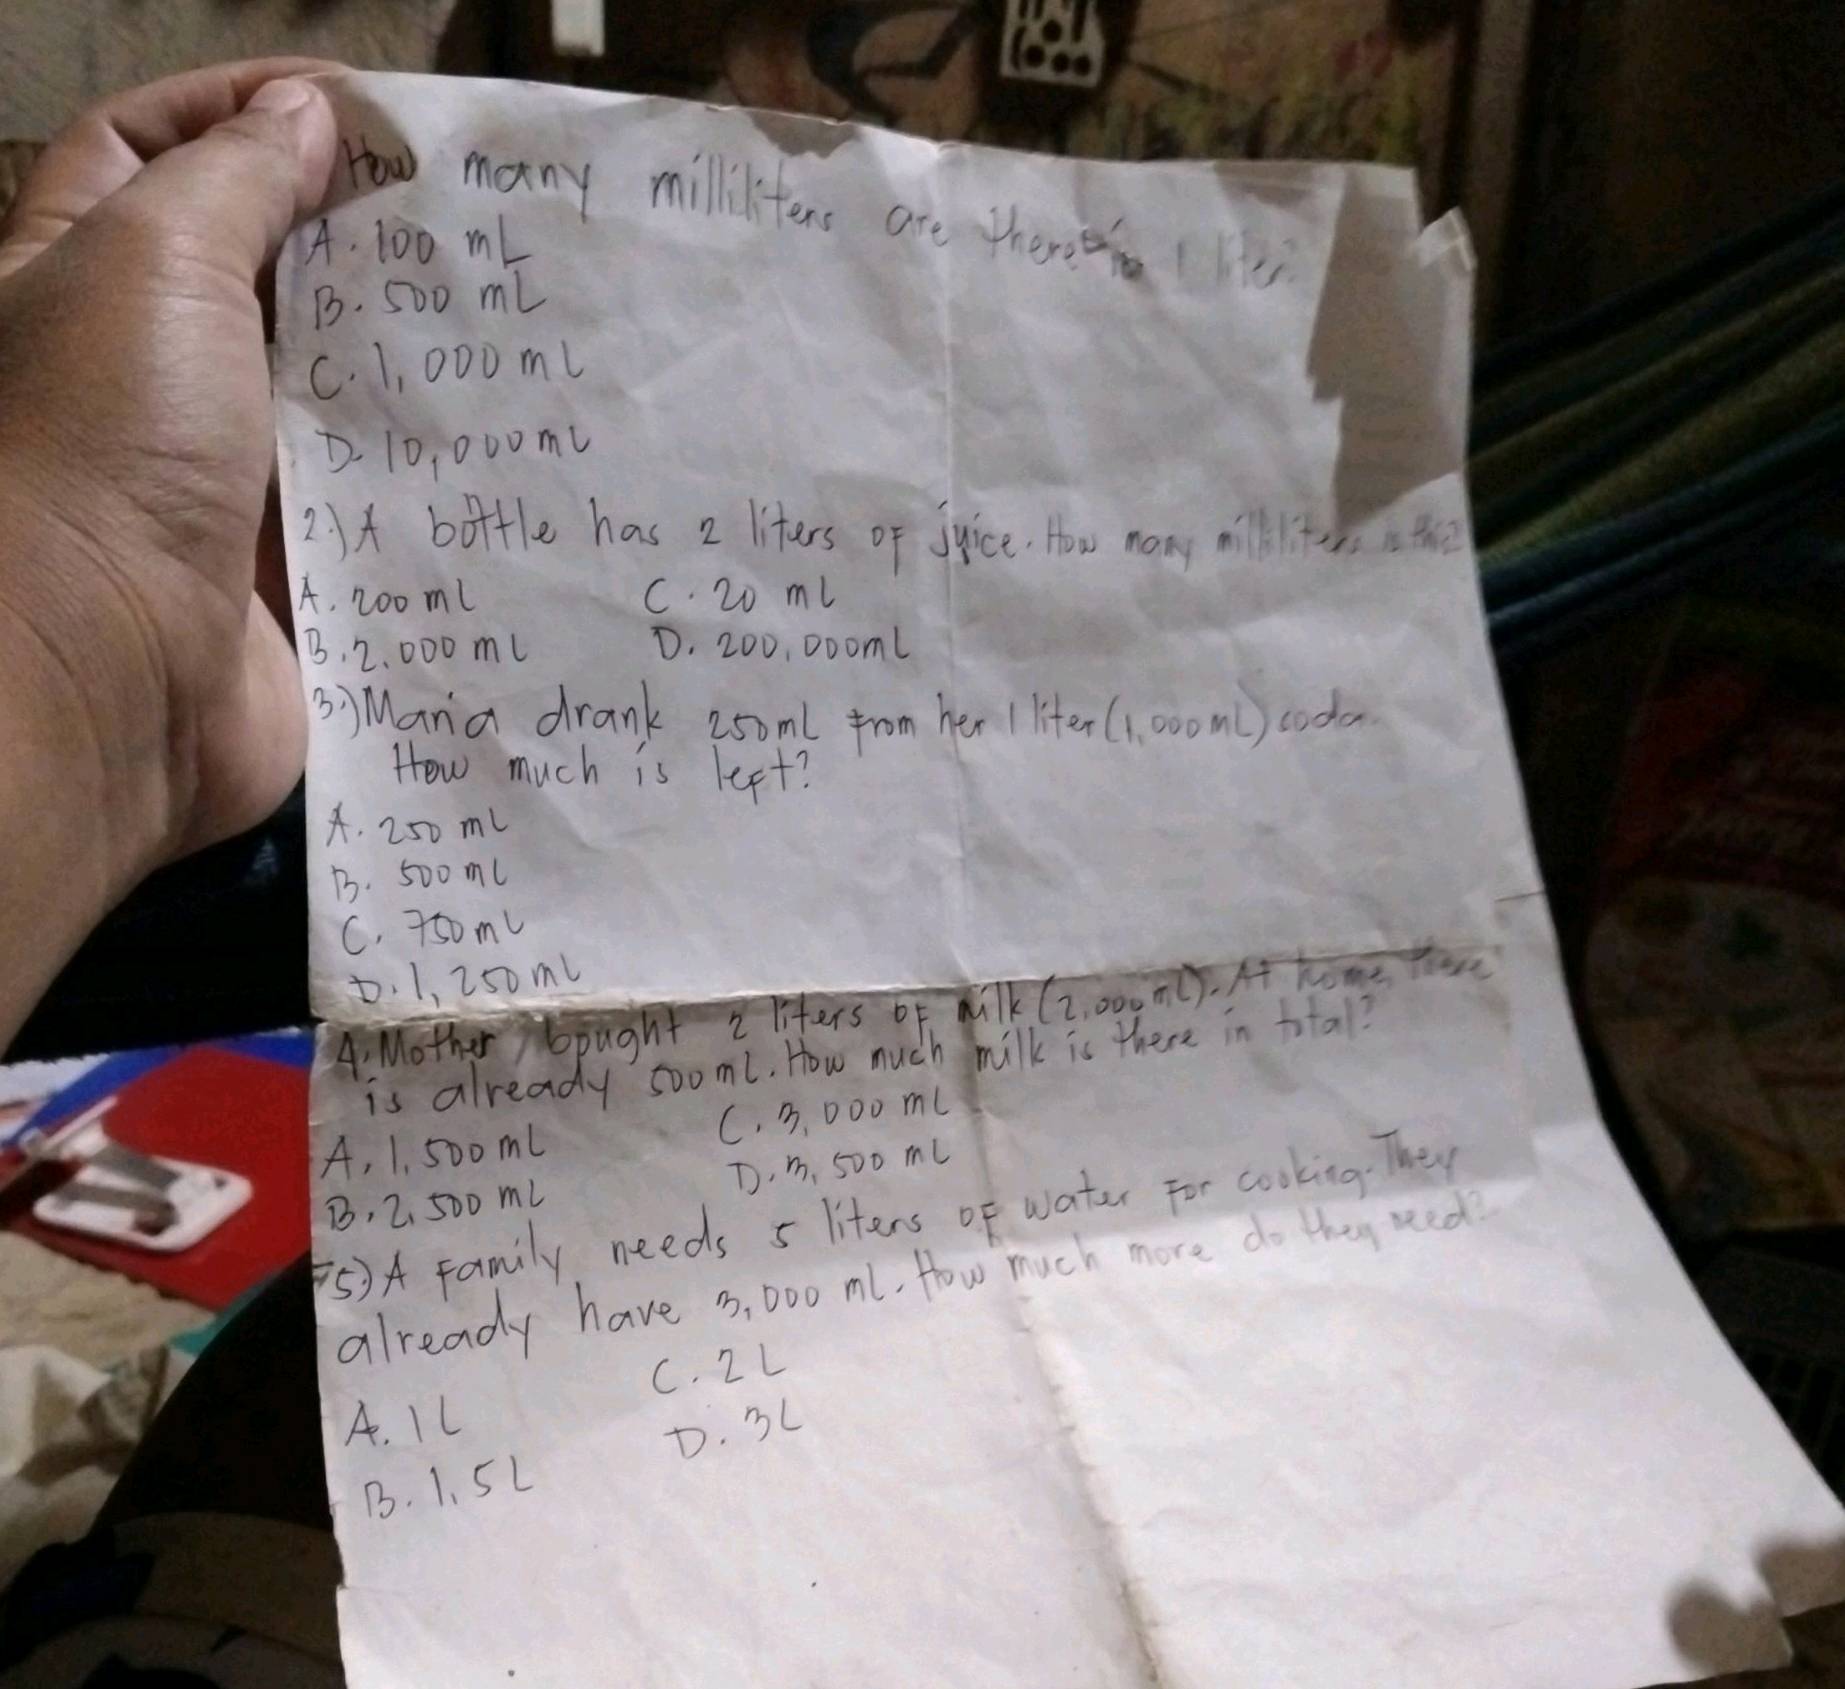 How many milliliters are there in 1 liter?
A. 100 mL
B. 500 mL
C. 1,000 mL
D. 10,000 mL
2.) A bottle has 2 liters of juice. How many milliliters is this?
A. 200 mL C. 20 mL
B. 2,000 mL D. 200,000mL
3.) Maria drank 250mL from her 1 liter (1,000mL) coda.
How much is left?
A. 250 mL
B. 500 mL
C. 750 mL
D. 1,250 mL
4. Mother bought 2 liters of milk (2,000 mL). At home, there
is already 500mL. How much milk is there in total?
A. 1,500 mL C. 3,000 mL
B. 2,500 mL D. 3,500 mL
5.) A Family needs 5 liters of water For cooking. They
already have 3,000 mL. How much more do they need?
A. 1L C. 2L
B. 1.5L D. 3L